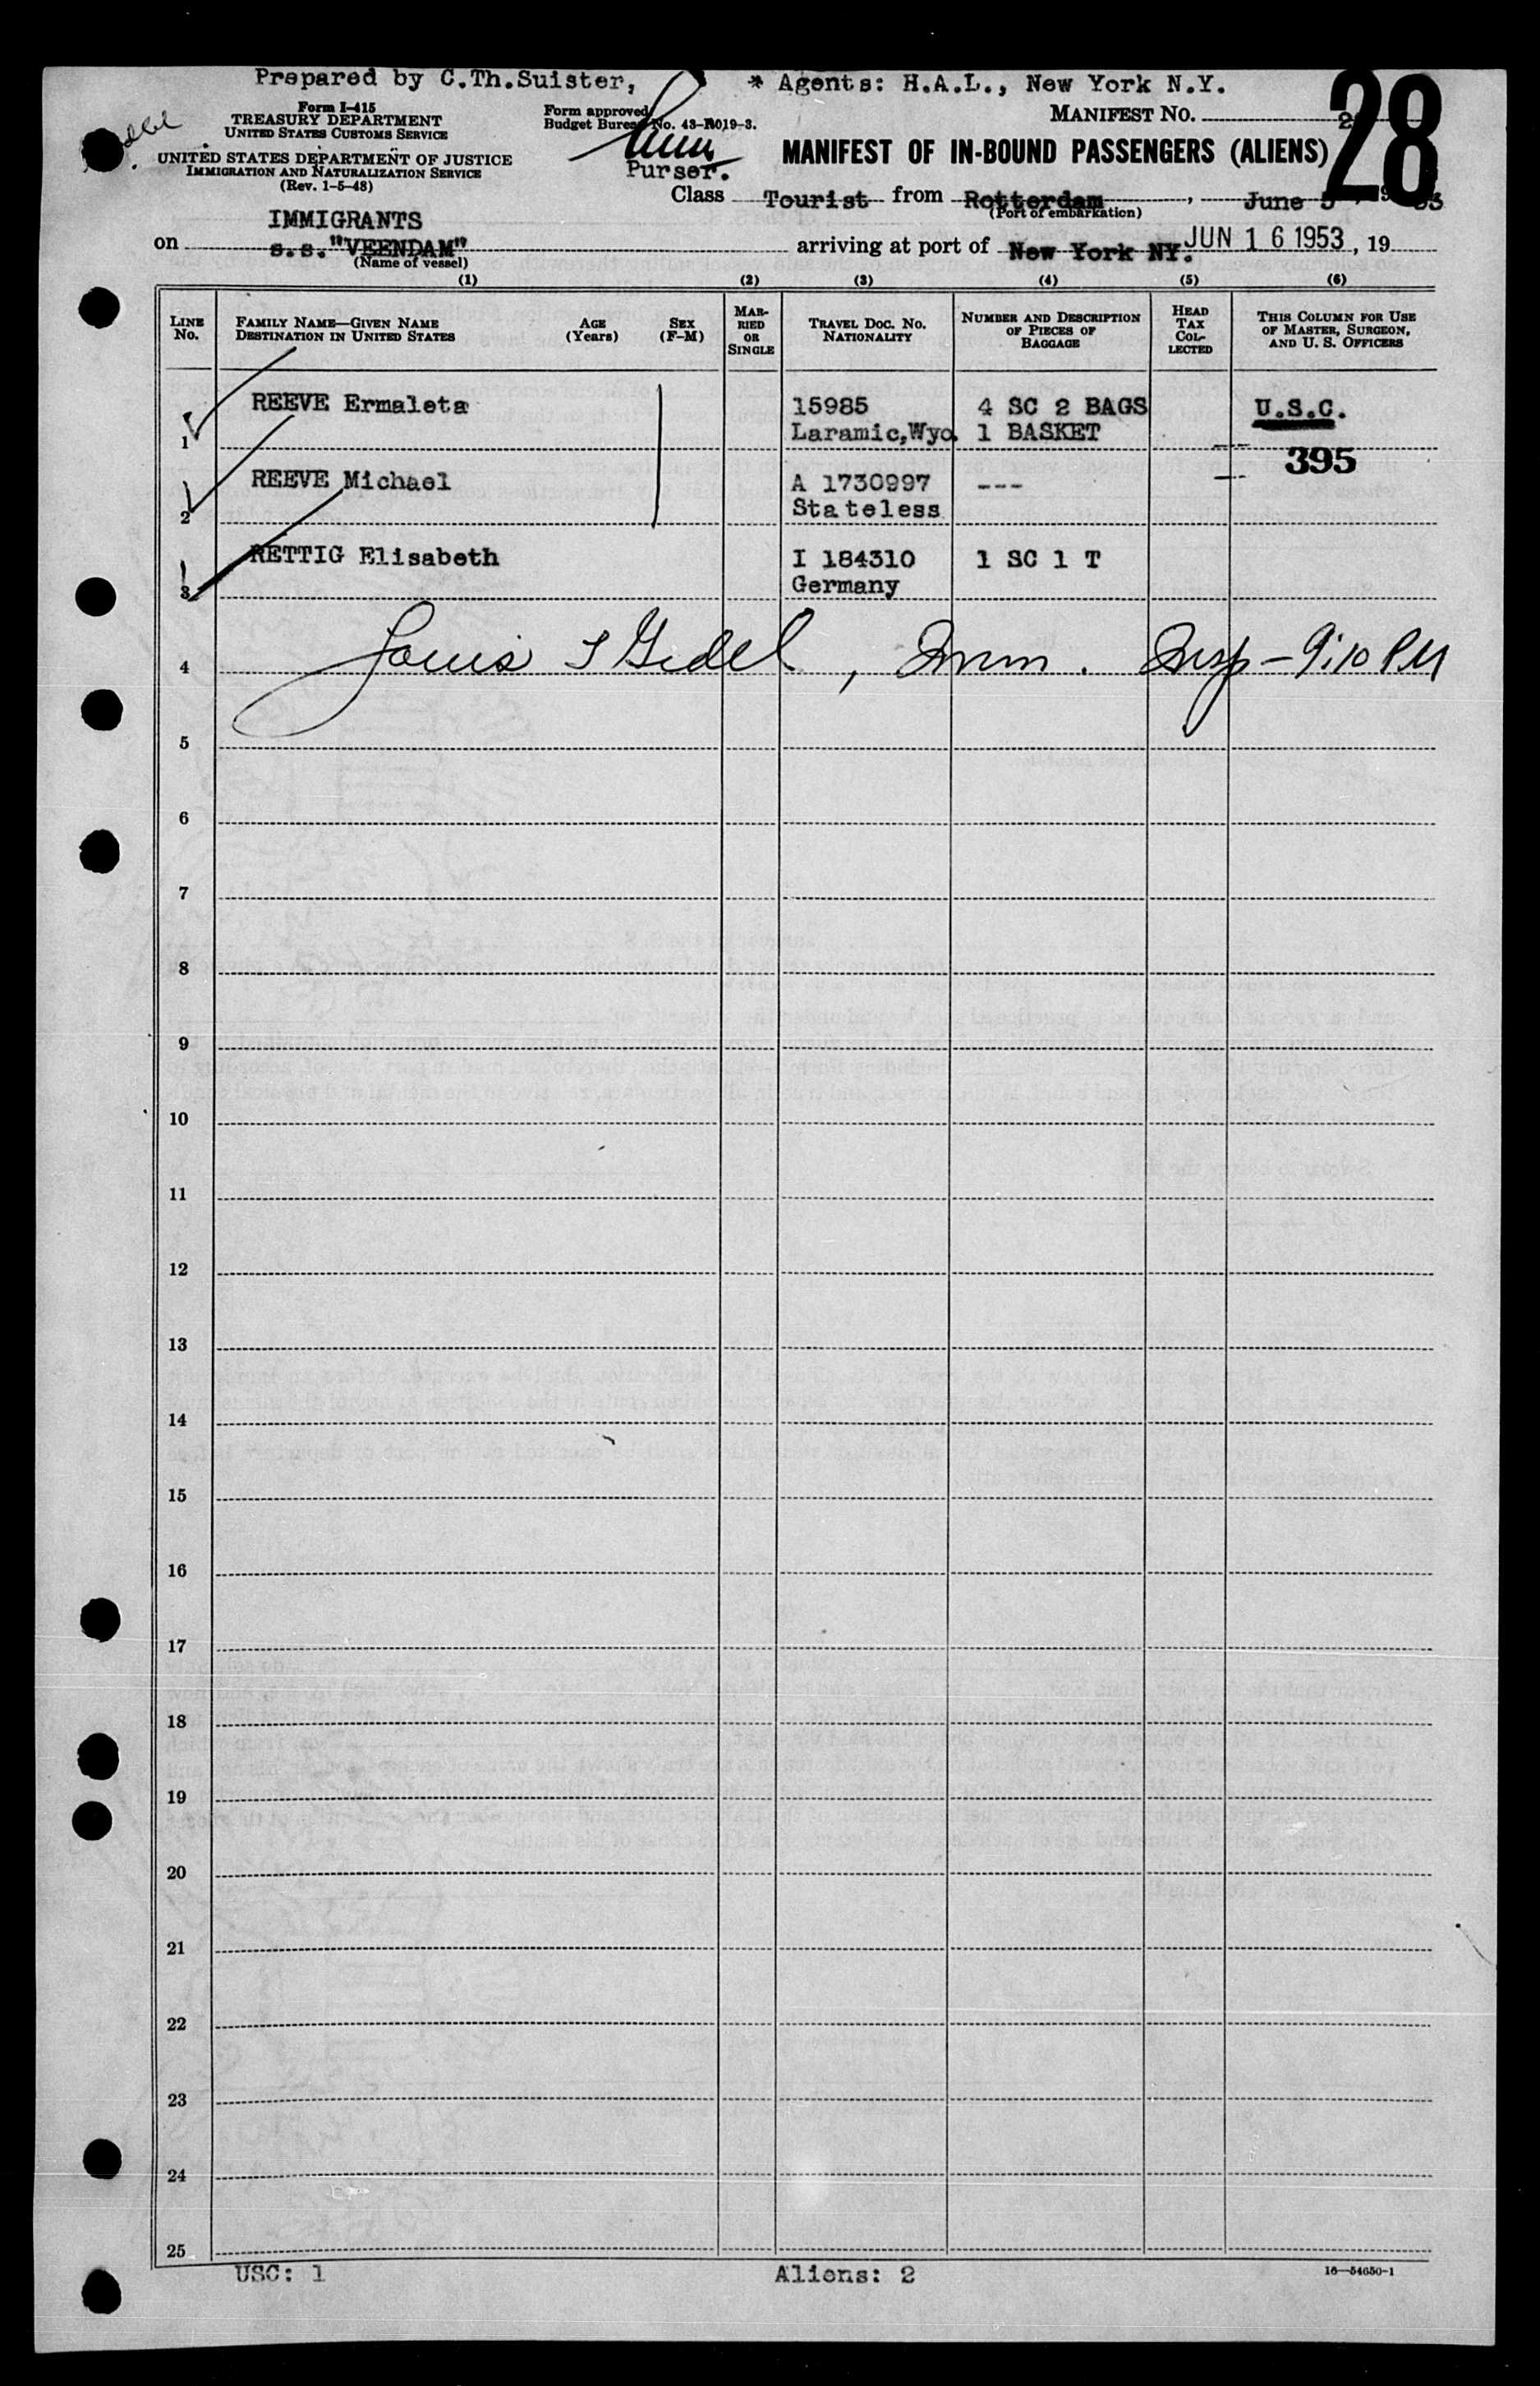 Prepared by C.Th.Suister, * Agents: H.A.L., New York N.Y.
Form I-415
TREASURY DEPARTMENT
UNITED STATES CUSTOMS SERVICE
UNITED STATES DEPARTMENT OF JUSTICE
IMMIGRATION AND NATURALIZATION SERVICE
(Rev. 1-5-48)
Form approved
Budget Bureau No. 43-R019-3.
Purser.
MANIFEST NO.
28
MANIFEST OF IN-BOUND PASSENGERS (ALIENS)
Class Tourist from Rotterdam, June 5, 1953
(Port of embarkation)
IMMIGRANTS
on s.s. "VEENDAM" arriving at port of New York NY. JUN 16 1953, 19
(Name of vessel)
(1) (2) (3) (4) (5) (6)
LINE NO.
FAMILY NAME—GIVEN NAME
DESTINATION IN UNITED STATES
AGE (Years)
SEX (F-M)
MARRIED OR SINGLE
TRAVEL DOC. NO.
NATIONALITY
NUMBER AND DESCRIPTION OF PIECES OF BAGGAGE
HEAD TAX COLLECTED
THIS COLUMN FOR USE OF MASTER, SURGEON, AND U. S. OFFICERS
1 REEVE Ermaleta 15985 4 SC 2 BAGS U.S.C.
Laramic,Wyo. 1 BASKET
395
2 REEVE Michael A 1730997 ---
Stateless
3 RETTIG Elisabeth I 184310 1 SC 1 T
Germany
4 Louis Gedel, Imm. Insp - 9:10 PM
5
6
7
8
9
10
11
12
13
14
15
16
17
18
19
20
21
22
23
24
25
USC: 1 Aliens: 2 16—54650-1